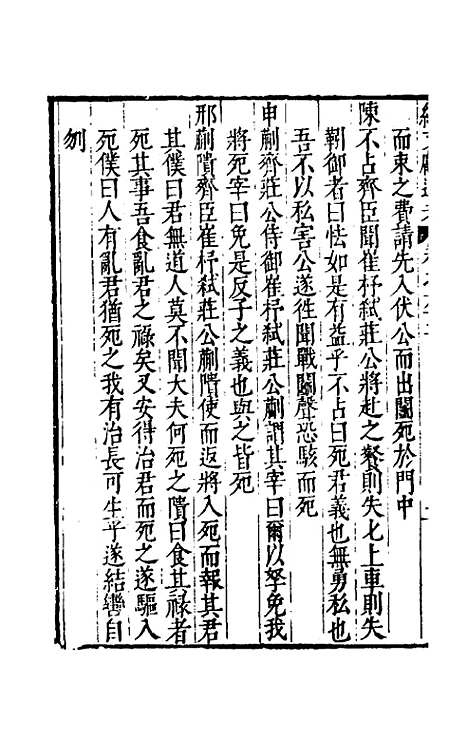 而束之費請先入伏公而出鬭死於門中
陳不占齊臣聞崔杼弑莊公將赴之餐則失匕上車則失
軾御者曰怯如是有益乎不占曰死君義也無勇私也
吾不以私害公遂徃聞戰鬭聲恐駭而死
申蒯齊莊公侍御崔杼弑莊公蒯謂其宰曰爾以孥免我
將死宰曰免是反子之義也與之皆死
邢蒯瞶齊臣崔杼弑莊公蒯瞶使而返將入死而報其君
其僕曰君無道人莫不聞大夫何死之瞶曰食其祿者
死其事吾食亂君之祿矣又安得治君而死之遂驅入
死僕曰人有亂君猶死之我有治長可生乎遂結轡自
刎